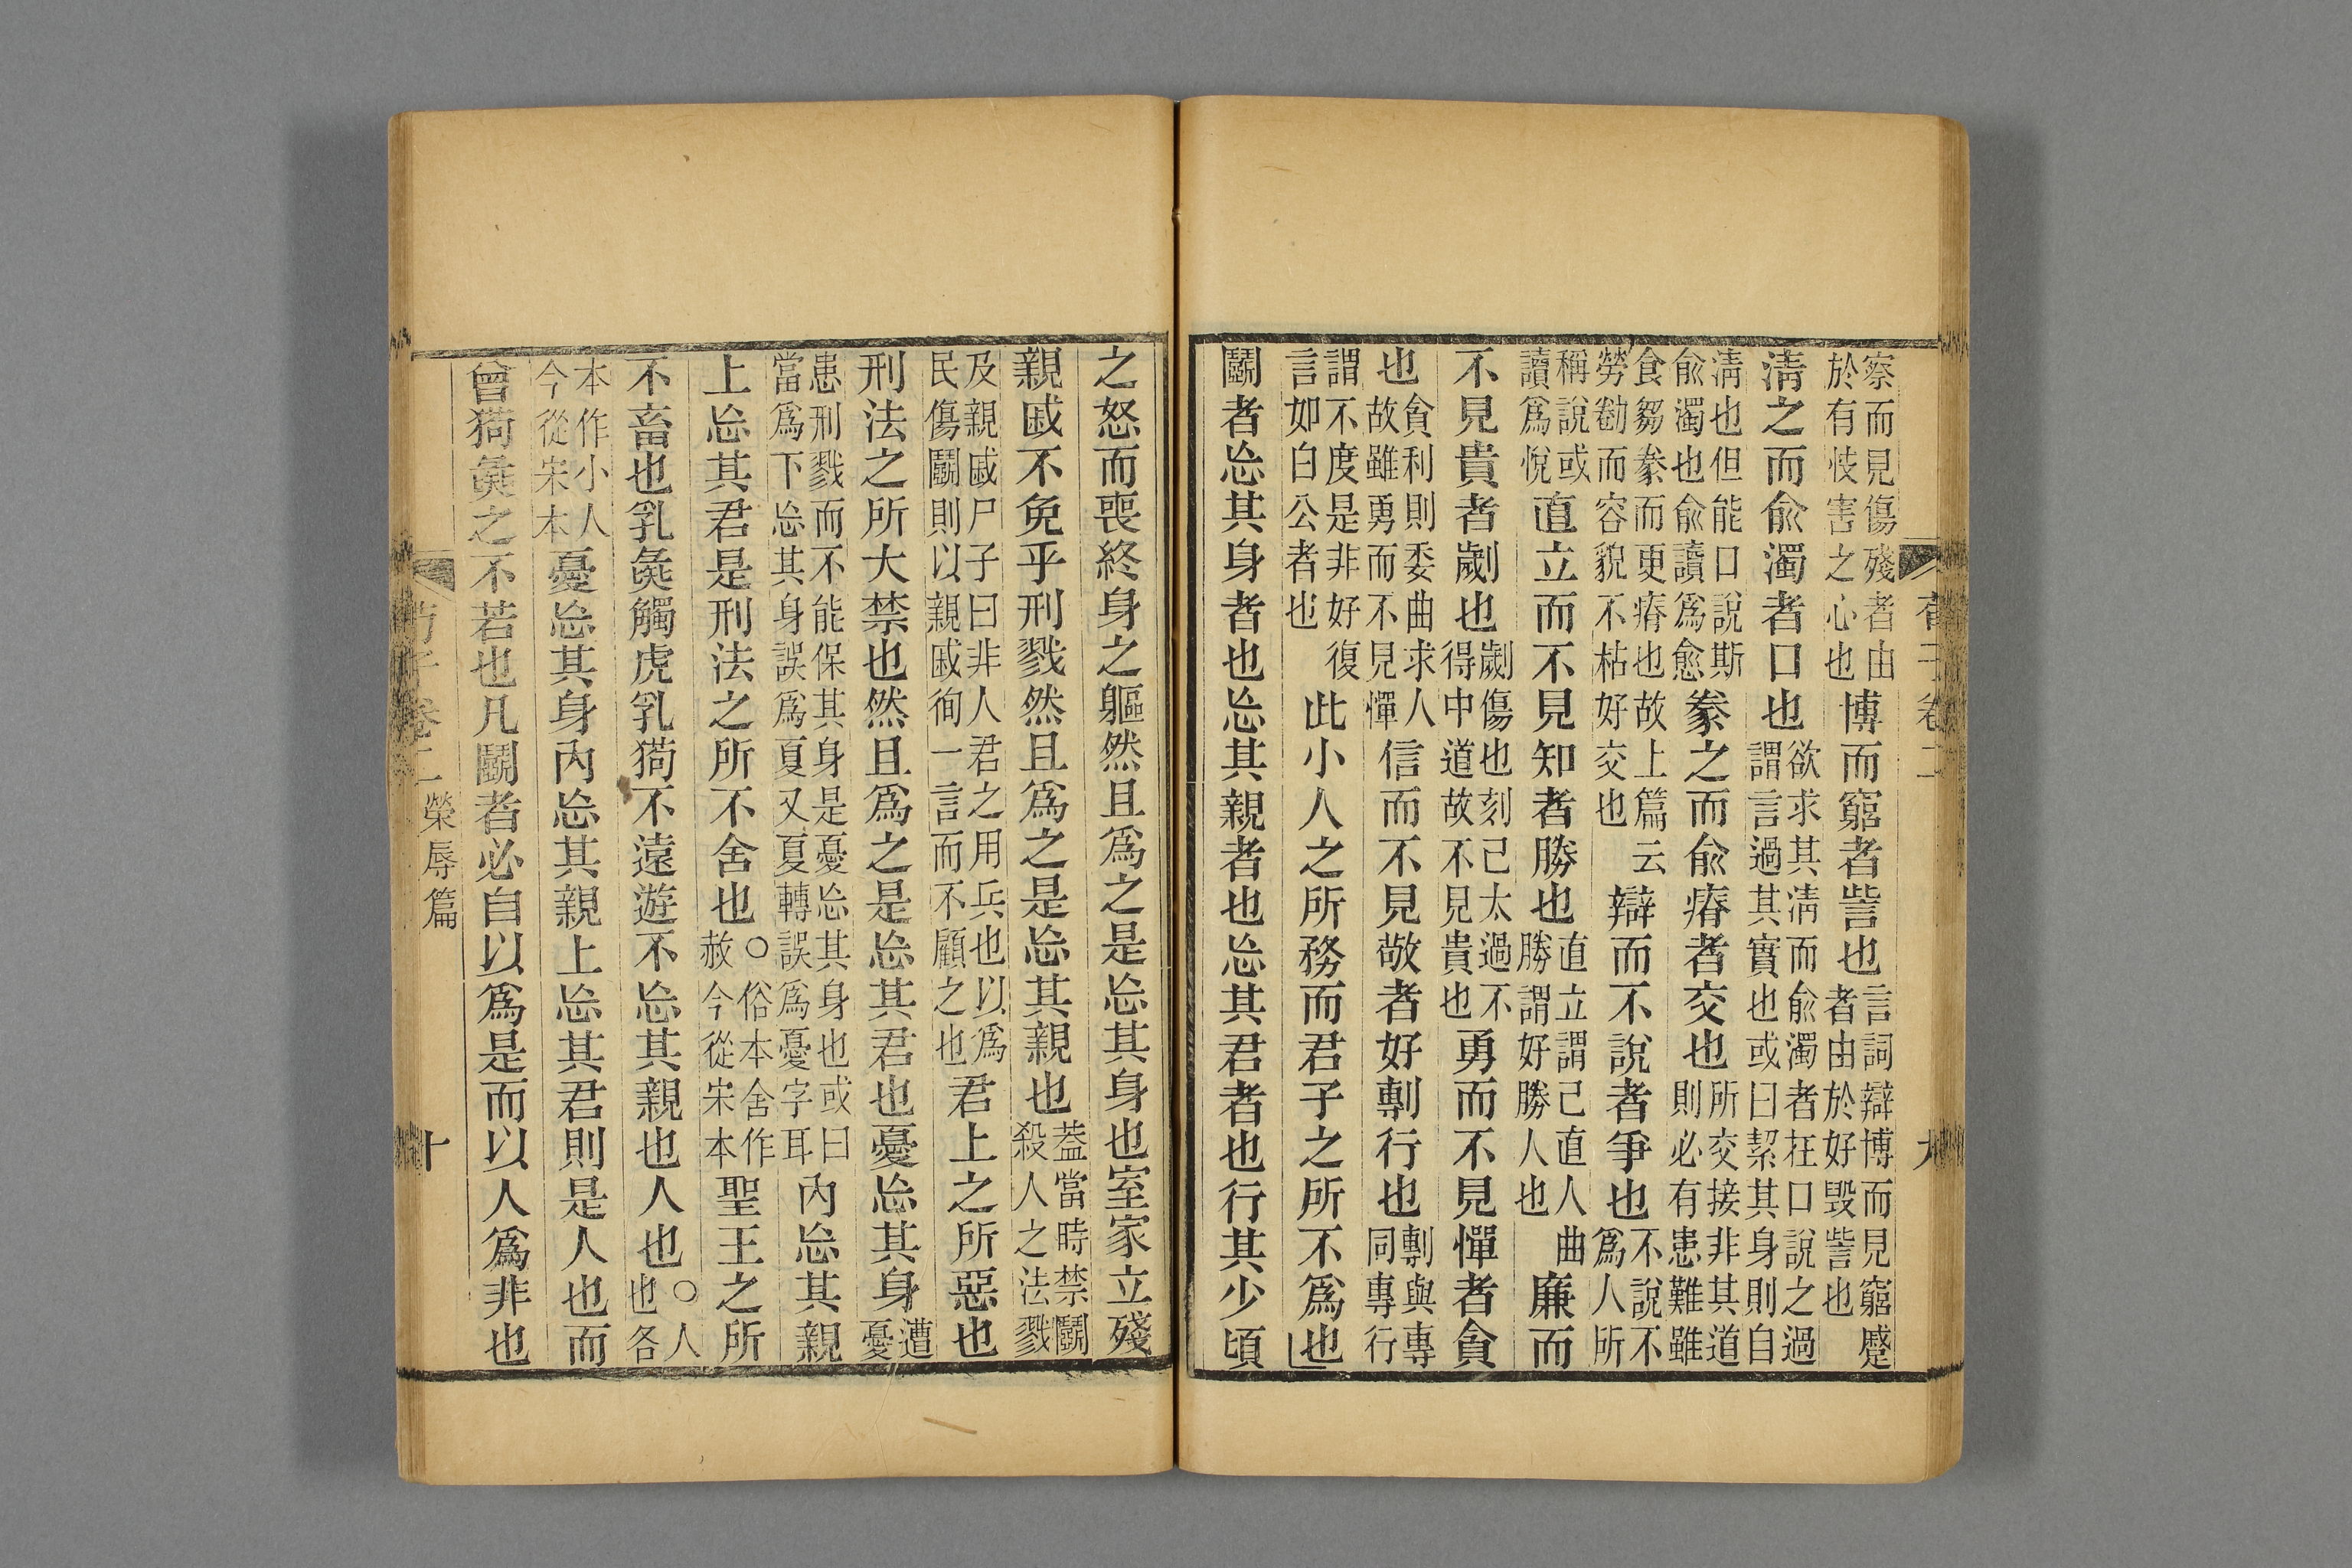 察而見傷殘者由
於有忮害之心也
博而窮者訾也
言詞辯博而見窮蹙
者由於好毀訾也
清之而俞濁者口也
欲求其清而俞濁者在口說之過
謂言過其實也或曰絜其身則自
清也但能口說斯
俞濁也俞讀爲愈
豢之而俞瘠者交也
所交接非其道
則必有患難雖
食芻豢而更瘠也故上篇云
勞勌而容貌不枯好交也
辯而不說者爭也
不說不
爲人所
稱說或
讀爲悅
直立而不見知者勝也
直立謂己直人曲
勝謂好勝人也
廉而
不見貴者劌也
劌傷也刻己太過不
得中道故不見貴也
勇而不見憚者貪
也
貪利則委曲求人
故雖勇而不見憚
信而不見敬者好剸行也
剸與專
同專行
謂不度是非好復
言如白公者也
此小人之所務而君子之所不爲也
鬭者忘其身者也忘其親者也忘其君者也行其少頃
之怒而喪終身之軀然且爲之是忘其身也室家立殘
親戚不免乎刑戮然且爲之是忘其親也
葢當時禁鬭
殺人之法戮
及親戚尸子曰非人君之用兵也以爲
民傷鬭則以親戚徇一言而不顧之也
君上之所惡也
刑法之所大禁也然且爲之是忘其君也憂忘其身
遭
憂
患刑戮而不能保其身是憂忘其身也或曰
當爲下忘其身誤爲夏又夏轉誤爲憂字耳
內忘其親
上忘其君是刑法之所不舍也
○俗本舍作
赦今從宋本
聖王之所
不畜也乳彘觸虎乳狗不遠遊不忘其親也人也
○人
也各
本作小人
今從宋本
憂忘其身內忘其親上忘其君則是人也而
曾狗彘之不若也凡鬭者必自以爲是而以人爲非也
卷二
榮辱篇
十